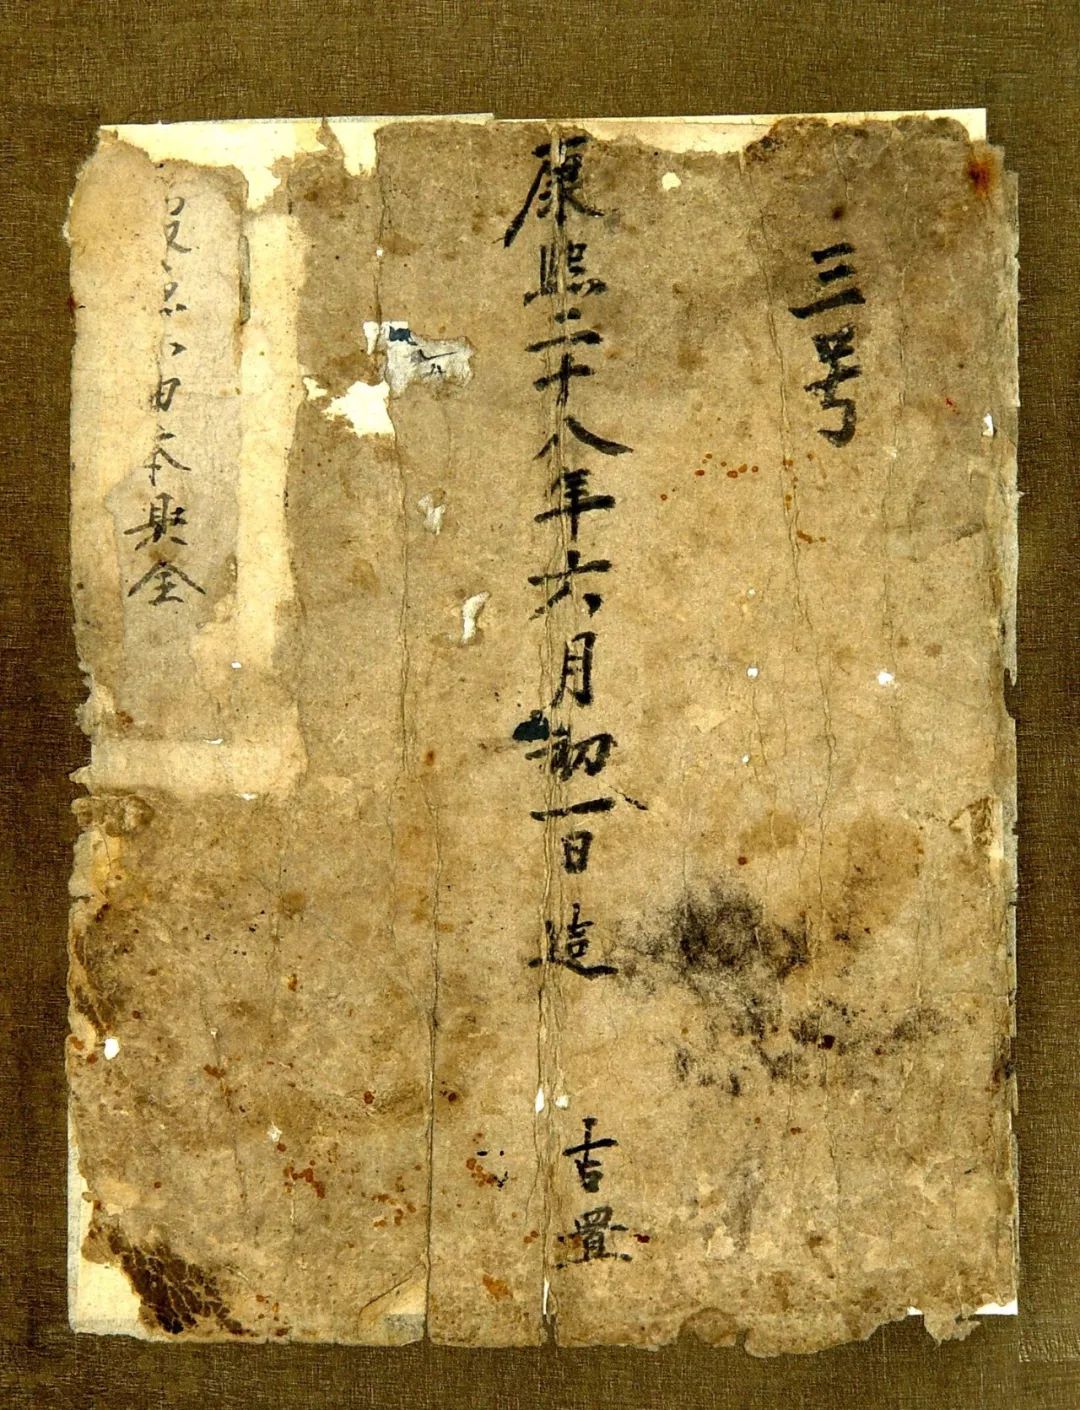 三号
康熙二十八年六月初一日造 吉置
日本具全